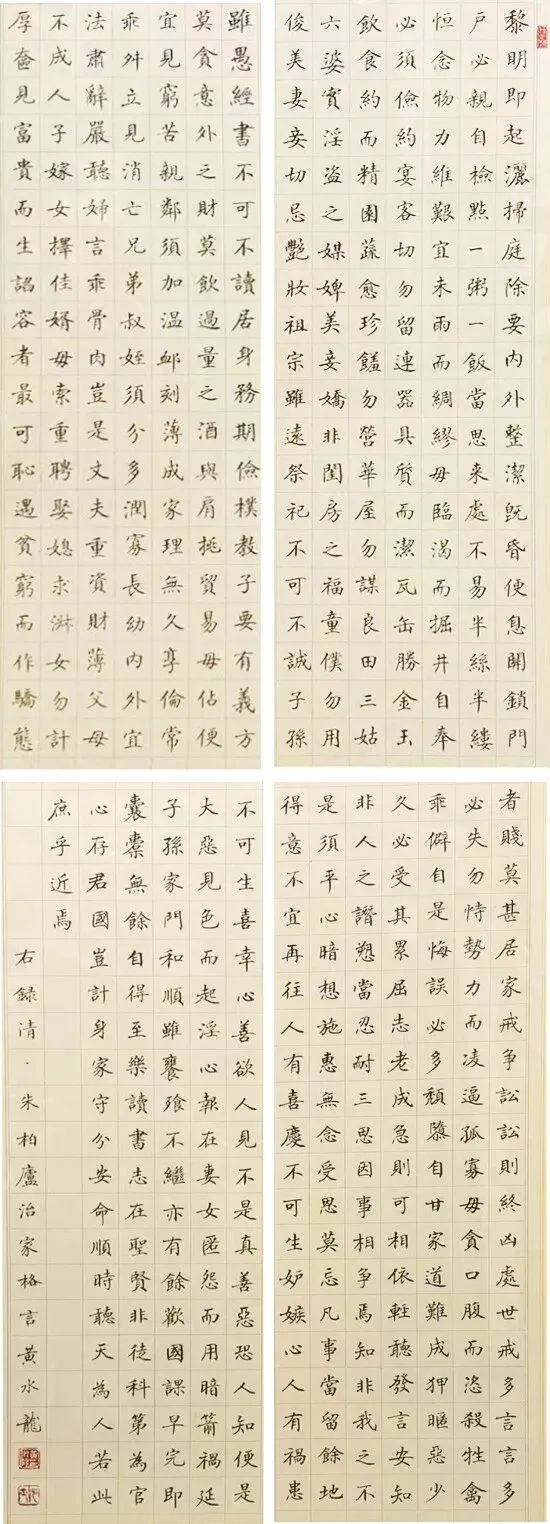 黎明即起灑掃庭除要内外整潔既昏便息關鎖門
户必親自檢點一粥一飯當思来處不易半絲半縷
恒念物力維艱宜未雨而綢繆毋臨渴而掘井自奉
必須儉約宴客切勿留連器具質而潔瓦缶勝金玉
飲食約而精園蔬愈珍饈勿營華屋勿謀良田三姑
六婆實淫盗之媒婢美妾嬌非閨房之福童僕勿用
俊美妻妾切忌艷妝祖宗雖遠祭祀不可不誠子孫
雖愚經書不可不讀居身務期儉樸教子要有義方
莫貪意外之財莫飲過量之酒與肩挑貿易毋佔便
宜見窮苦親鄰須加温卹刻薄成家理無久享倫常
乖舛立見消亡兄弟叔姪須分多潤寡長幼内外宜
法肅辭嚴聽婦言乖骨肉豈是丈夫重資財薄父母
不成人子嫁女擇佳婿毋索重聘娶媳求淑女勿計
厚奩見富貴而生諂容者最可恥遇貧窮而作驕態
者賤莫甚居家戒争訟訟則終凶處世戒多言言多
必失勿恃勢力而凌逼孤寡毋貪口腹而恣殺牲禽
乖僻自是悔誤必多頹隳自甘家道難成狎暱惡少
久必受其累屈志老成急則可相依輕聽發言安知
非人之譖愬當忍耐三思因事相争焉知非我之不
是須平心暗想施惠無念受恩莫忘凡事當留餘地
得意不宜再往人有喜慶不可生妒嫉心人有禍患
不可生喜幸心善欲人見不是真善惡恐人知便是
大惡見色而起淫心報在妻女匿怨而用暗箭禍延
子孫家門和順雖饔飧不繼亦有餘歡國課早完即
囊橐無餘自得至樂讀書志在聖賢非徒科第為官
心存君國豈計身家守分安命順時聽天為人若此
庶乎近焉
右録清·朱柏廬治家格言黄水龍